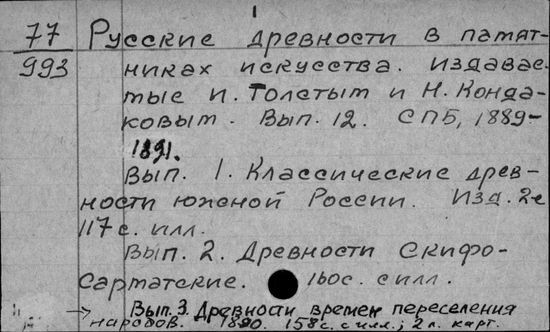 1
77
993
Русские древности в памят-
никах искусства. издавае-
мые И. Толстым и Н. Конда-
ковым. Вып. 12. СПБ, 1889-
1891.
Вып. 1. Классические древ-
ности южной России. Изд. 2-е
117 с. илл.
Вып. 2. Древности Скифо-
Сарматские. 160с. с илл.
→ Вып. 3. Древности времен переселения
народов. 1890. 158с. с илл.; 2 л. карт.